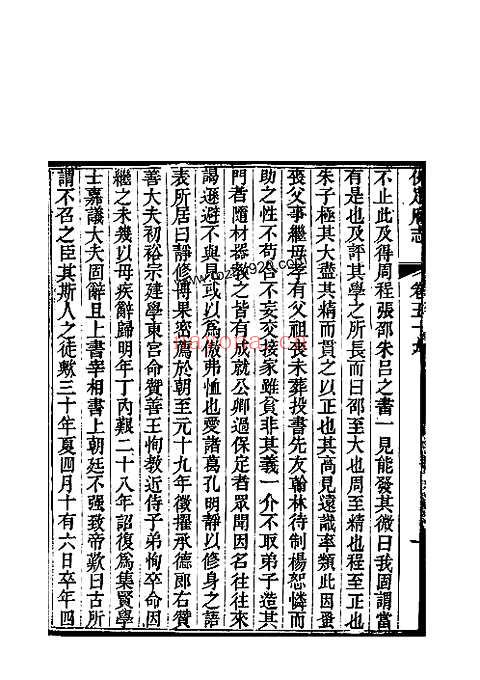 保定府志
卷五十九
不止此及得周程張邵朱呂之書一見能發其微曰我固謂當
有是也及評其學之所長而曰邵至大也周至精也程至正也
朱子極其大盡其精而貫之以正也其高見遠識率類此因蚤
喪父事繼母孝有父祖喪未葬投書先友翰林待制楊恕憐而
助之性不苟合不妄交接家雖貧非其義一介不取弟子造其
門者隨材器教之皆有成就公卿過保定者眾聞因名往往來
謁遜避不與見或以為傲弗恤也愛諸葛孔明靜以修身之語
表所居曰靜修博果密薦於朝至元十九年徵擢承德郎右贊
善大夫初裕宗建學東宮命贊善王恂教近侍子弟恂卒命因
繼之未幾以母疾辭歸明年丁內艱二十八年詔復為集賢學
士嘉議大夫固辭且上書宰相書上朝廷不强致帝歎曰古所
謂不召之臣其斯人之徒歟三十年夏四月十有六日卒年四